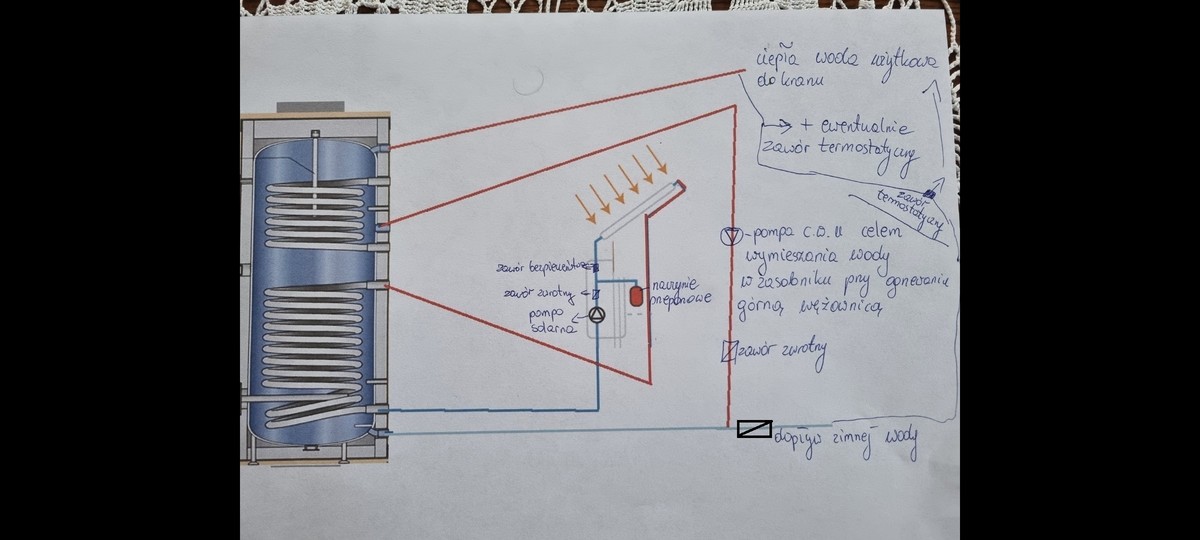 ciepła woda użytkowa
do kranu
+ ewentualnie
zawór termostatyczny
zawór
termostatyczny
- pompa C.O.U celem
wymieszania wody
w zasobniku przy ogrzewaniu
górną wężownicą
zawór bezpieczeństwa
zawór zwrotny
naczynie
przeponowe
pompa
solarna
zawór zwrotny
dopływ zimnej wody